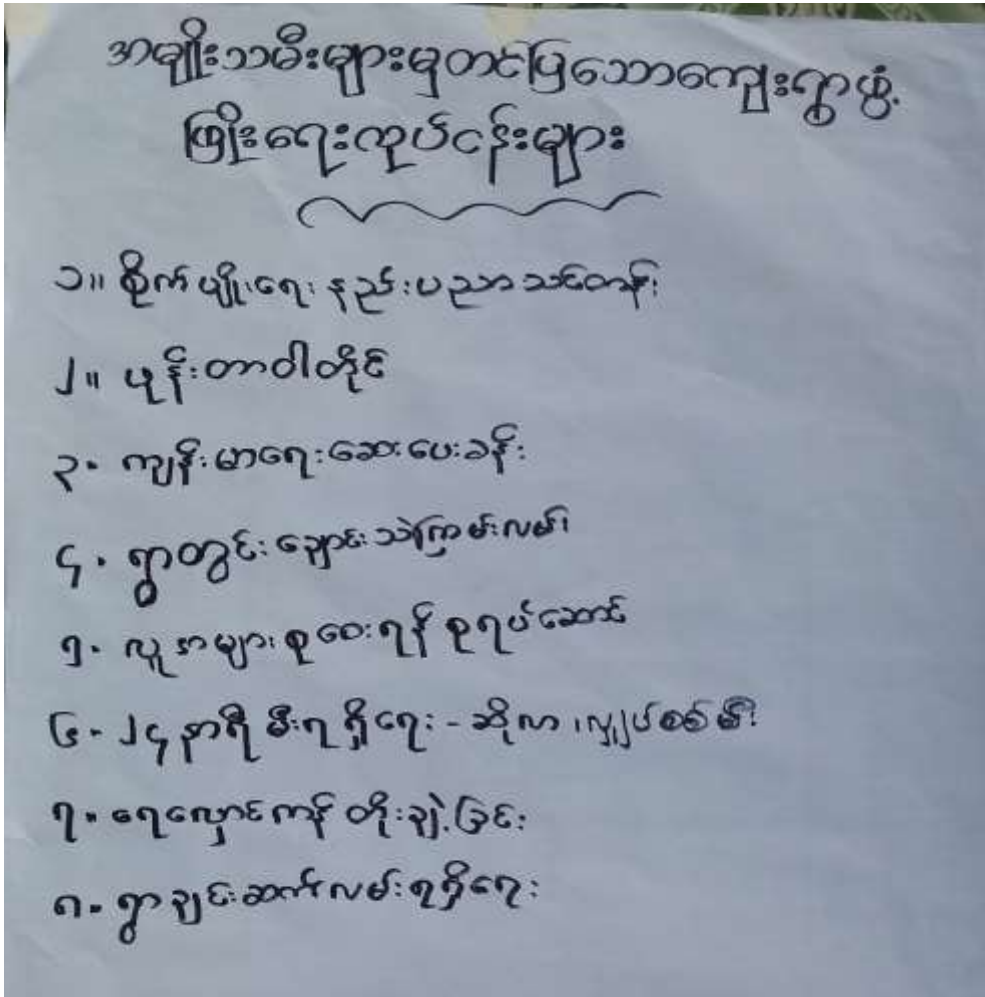 အမျိုးသမီးများမှတင်ပြသောကျေးရွာဖွံ့
ဖြိုးရေးလုပ်ငန်းများ
၁။ စိုက်ပျိုးရေး နည်းပညာသင်တန်း
၂။ ဖုန်းတာဝါတိုင်
၃။ ကျန်းမာရေးဆေးပေးခန်း
၄။ ရွာတွင်း ချောင်းသဲကြမ်းလမ်း
၅။ လူအများစုဝေးရန် စုရပ်ဆောင်
၆။ ၂၄ နာရီ မီးရရှိရေး - ဆိုလာ၊ လျှပ်စစ်မီး
၇။ ရေလှောင်ကန် တိုးချဲ့ခြင်း
၈။ ရွာချင်းဆက်လမ်းရရှိရေး